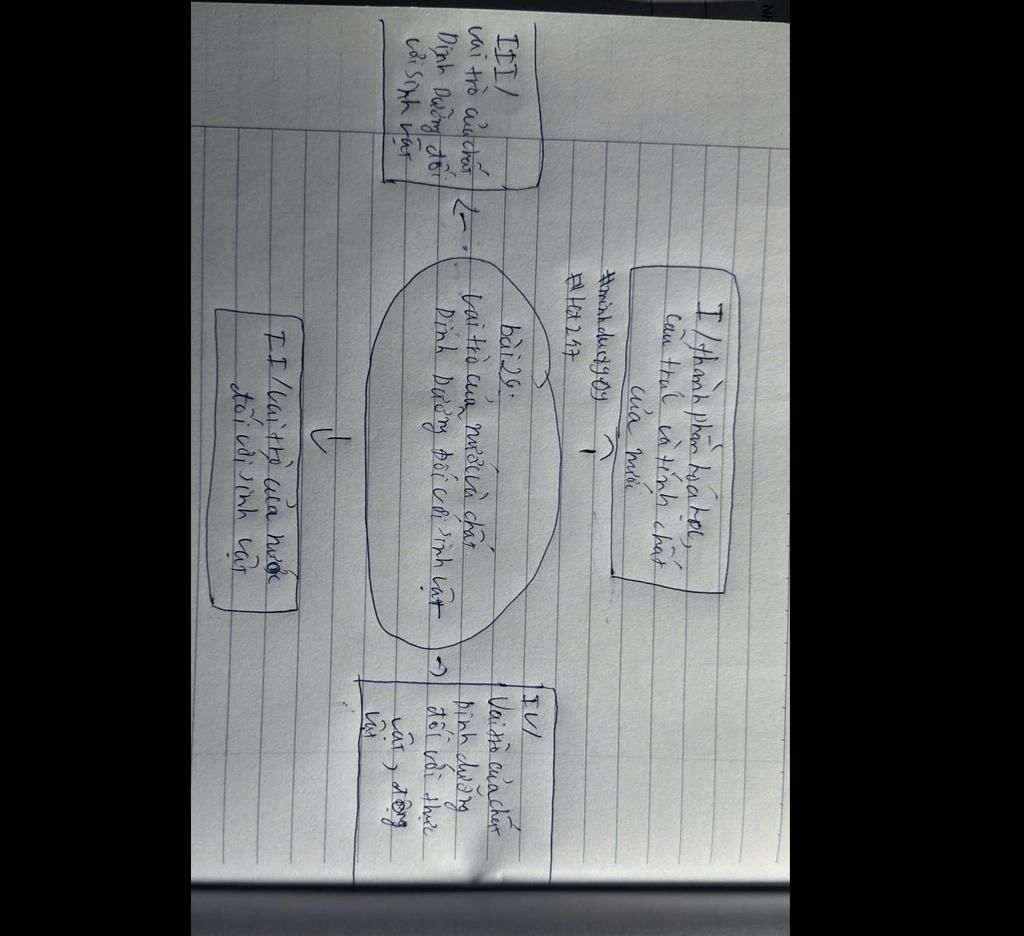 I/thành phần hóa học,
cấu trúc và tính chất
của nước
#minhduy8y0y
III/
vai trò của chất
Dinh Dưỡng đối
với sinh vật
bài 29:
vai trò của nước và chất
Dinh Dưỡng Đối với sinh vật
IV/
Vai trò của chất
Dinh dưỡng
đối với thực
vật, động
vật
II/vai trò của nước
đối với sinh vật